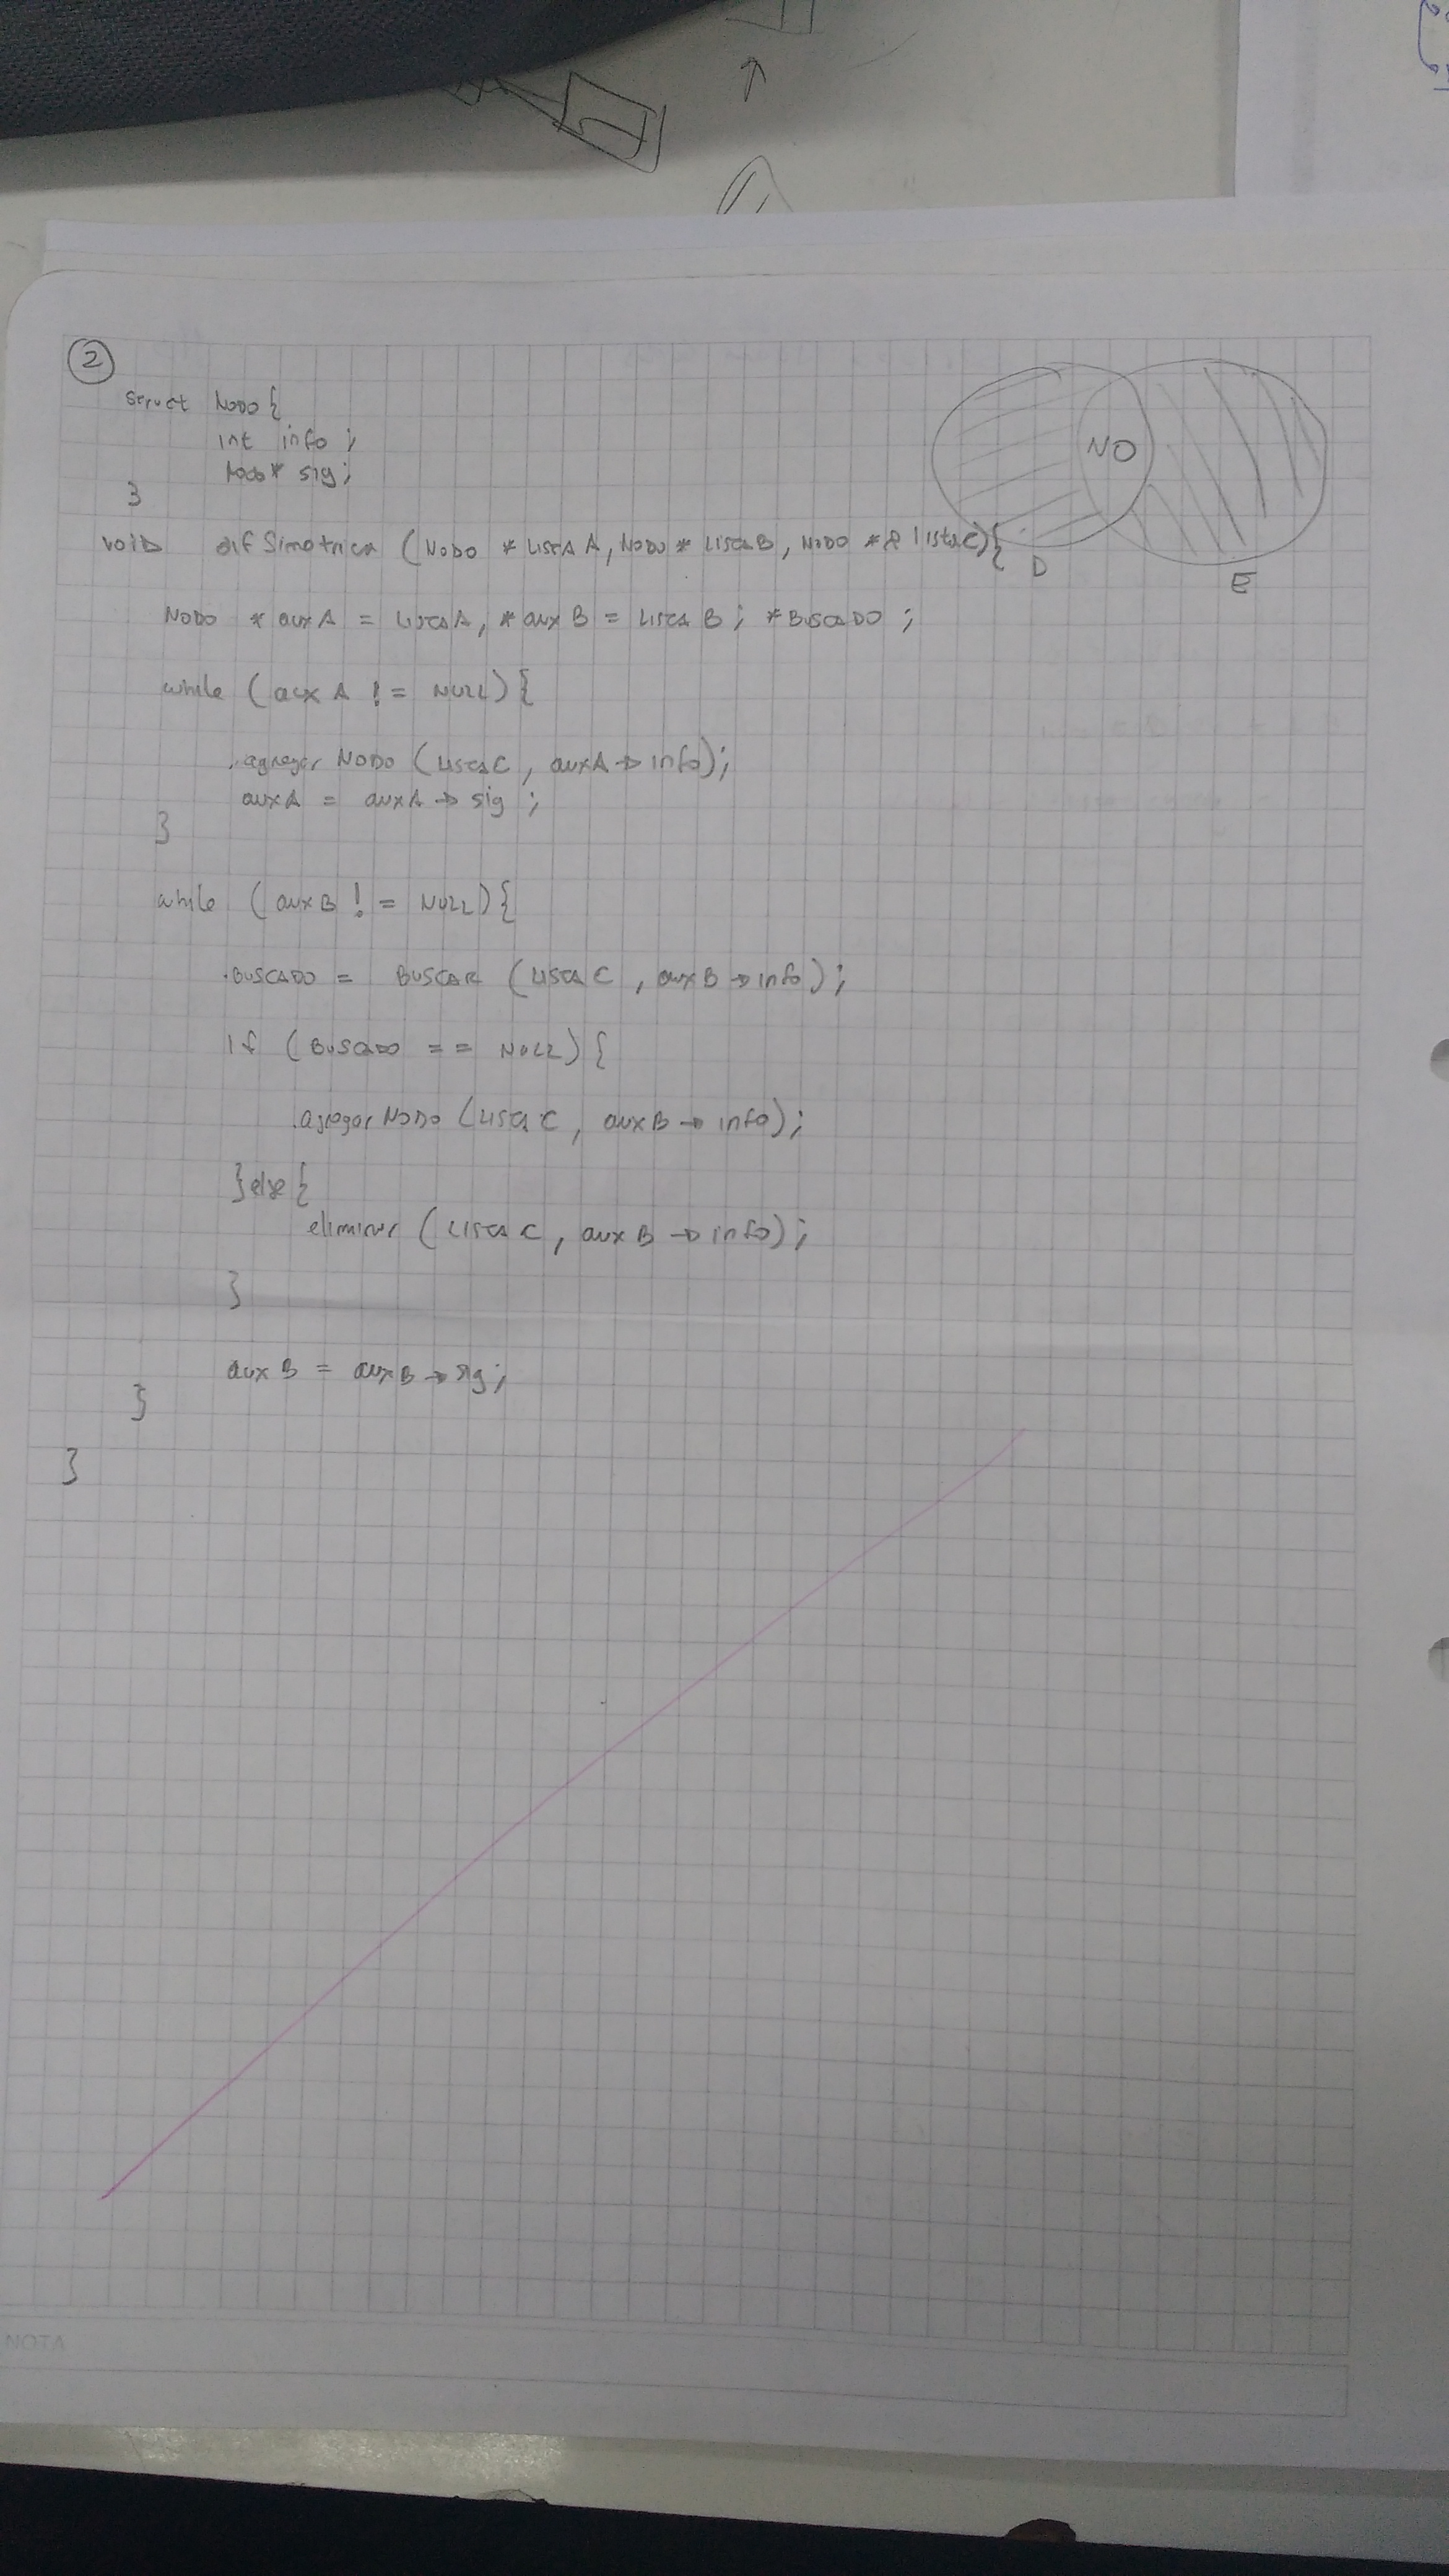 2
struct NODO {
int info ;
Nodo* sig;
}
NO
D
E
void difSimetrica (NODO * LISTA A, NODO * LISTA B, NODO *& listaC){
NODO * auxA = LISTAA, * auxB = LISTA B ; *BUSCADO ;
while (auxA != NULL){
agregar NODO (LISTAC, auxA→info);
auxA = auxA→sig ;
}
while (auxB != NULL){
BUSCADO = BUSCAR (LISTA C, auxB→info);
If (BUSCADO == NULL){
agregar NODO (LISTA C, auxB→info);
}else{
eliminar (LISTA C, auxB→info);
}
auxB = auxB→sig;
}
}
NOTA